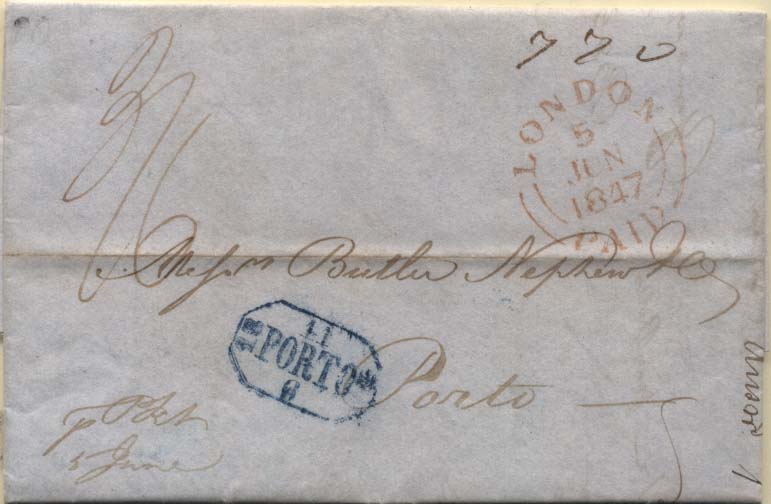 770
LONDON
5
JUN
1847
PAID
Messrs Butler Nephew & Co
11
PORTO
6
Porto
p Pkt
5 June